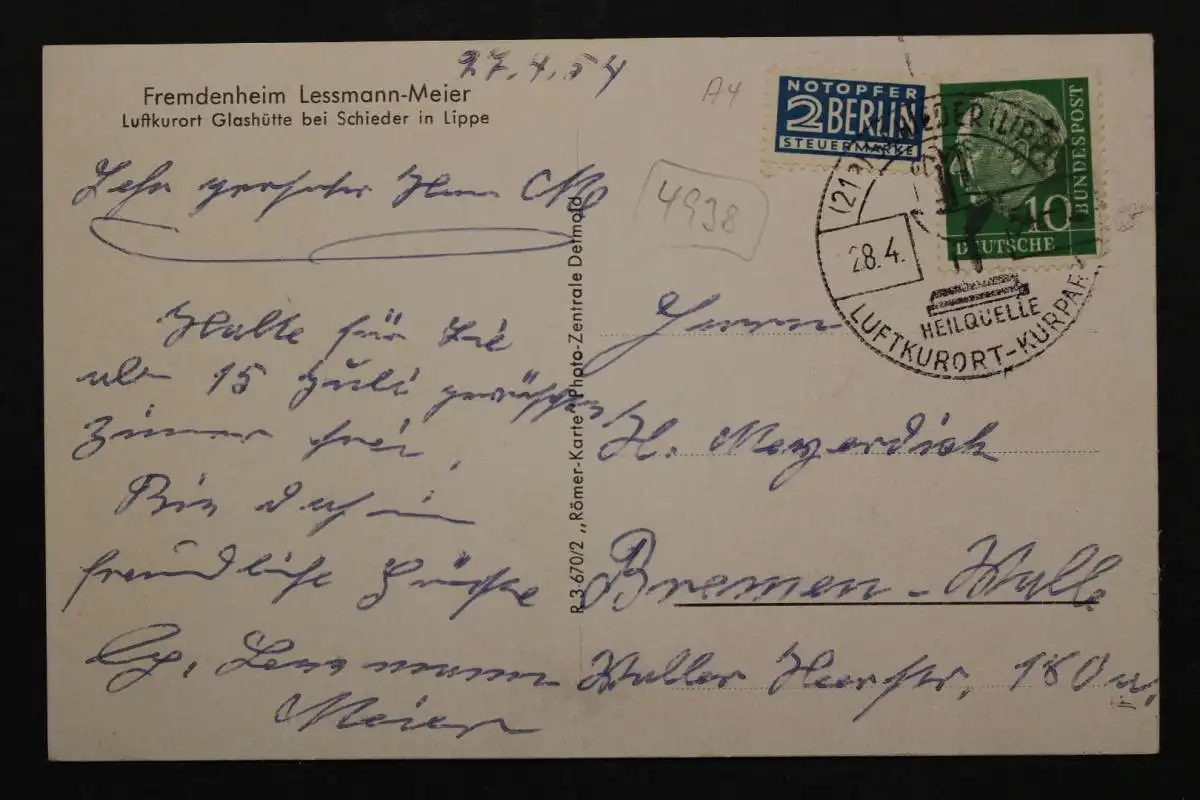 27.4.54
Fremdenheim Lessmann-Meier
Luftkurort Glashütte bei Schieder in Lippe
Sehr geehrter Herr M
Halte für Sie
ab 15 Juli gewünschte
Zimmer frei,
Bis dahin
freundliche Grüße
Lessmann
Meier
R 3-670/2 „Römer-Karte" Photo-Zentrale Detmold
A4
4938
NOTOPFER
2 BERLIN
STEUERMARKE
DEUTSCHE
BUNDESPOST
10
(21a) SCHIEDER (LIPPE)
28.4.
HEILQUELLE
LUFTKURORT-KURPARK
Herrn
H. Meyerdirk
Bremen-Walle
Waller Heerstr. 180 a.